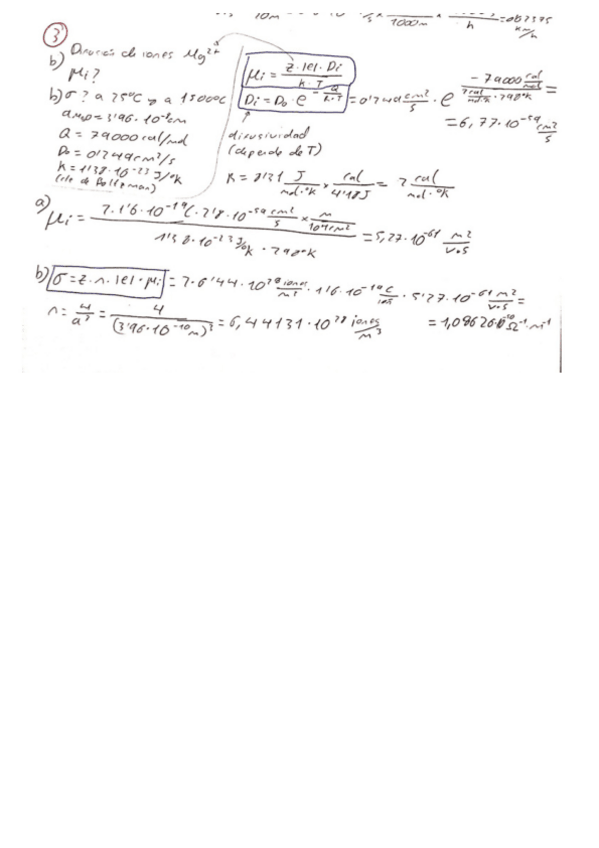 10m 1000m h km/h
3
b) Difusión de iones Mg²⁺
μi?
b) σ? a 25ºC y a 1500ºC
a MgO = 3'96·10⁻⁸cm
Q = 79000 cal/mol
D₀ = 0'249 cm²/s
K = 1'38·10⁻²³ J/ºK
(cte de Boltzman)
μi = z·|e|·Di / k·T
Di = D₀·e^(-Q/R·T) = 0'249 cm²/s · e^(-79000 cal/mol / 2 cal/mol·ºK · 298ºK) =
= 6,77·10⁻⁵⁹ cm²/s
difusividad
(depende de T)
R = 8'31 J/mol·ºK × cal/4'18J = 2 cal/mol·ºK
a) μi = 2·1'6·10⁻¹⁹C · 2'8·10⁻⁵⁹ cm²/s × m/10⁴cm² / 1'38·10⁻²³ J/ºK · 298ºK = 5,27·10⁻⁶¹ m²/V·s
b) σ = z·n·|e|·μi = 2·6'44·10²⁸ iones/m³ · 1'6·10⁻¹⁹ C/ion · 5'27·10⁻⁶¹ m²/V·s =
n = 4/a³ = 4/(3'96·10⁻¹⁰m)³ = 6,44131·10²⁸ iones/m³ = 1,08626 Ω⁻¹·m⁻¹